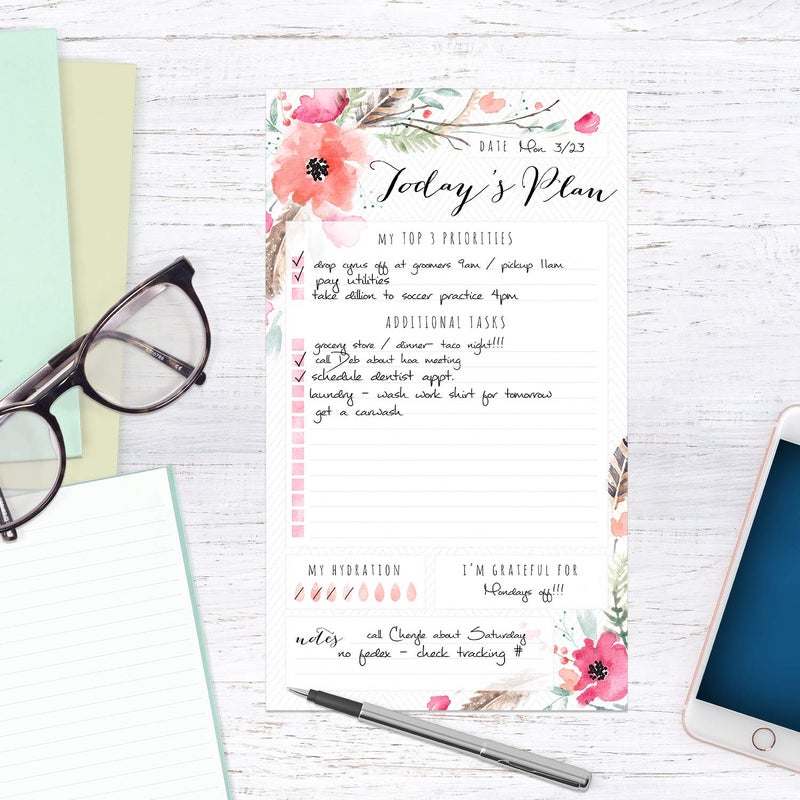 DATE Mon. 3/23
Today's Plan
MY TOP 3 PRIORITIES
drop cyrus off at groomers 9am / pickup 11am
pay utilities
take dillion to soccer practice 4pm
ADDITIONAL TASKS
grocery store / dinner- taco night!!!
call Deb about hoa meeting
schedule dentist appt.
laundry - wash work shirt for tomorrow
get a carwash
MY HYDRATION
I'M GRATEFUL FOR
Mondays off!!!
notes call Cheryle about Saturday
no fedex - check tracking #